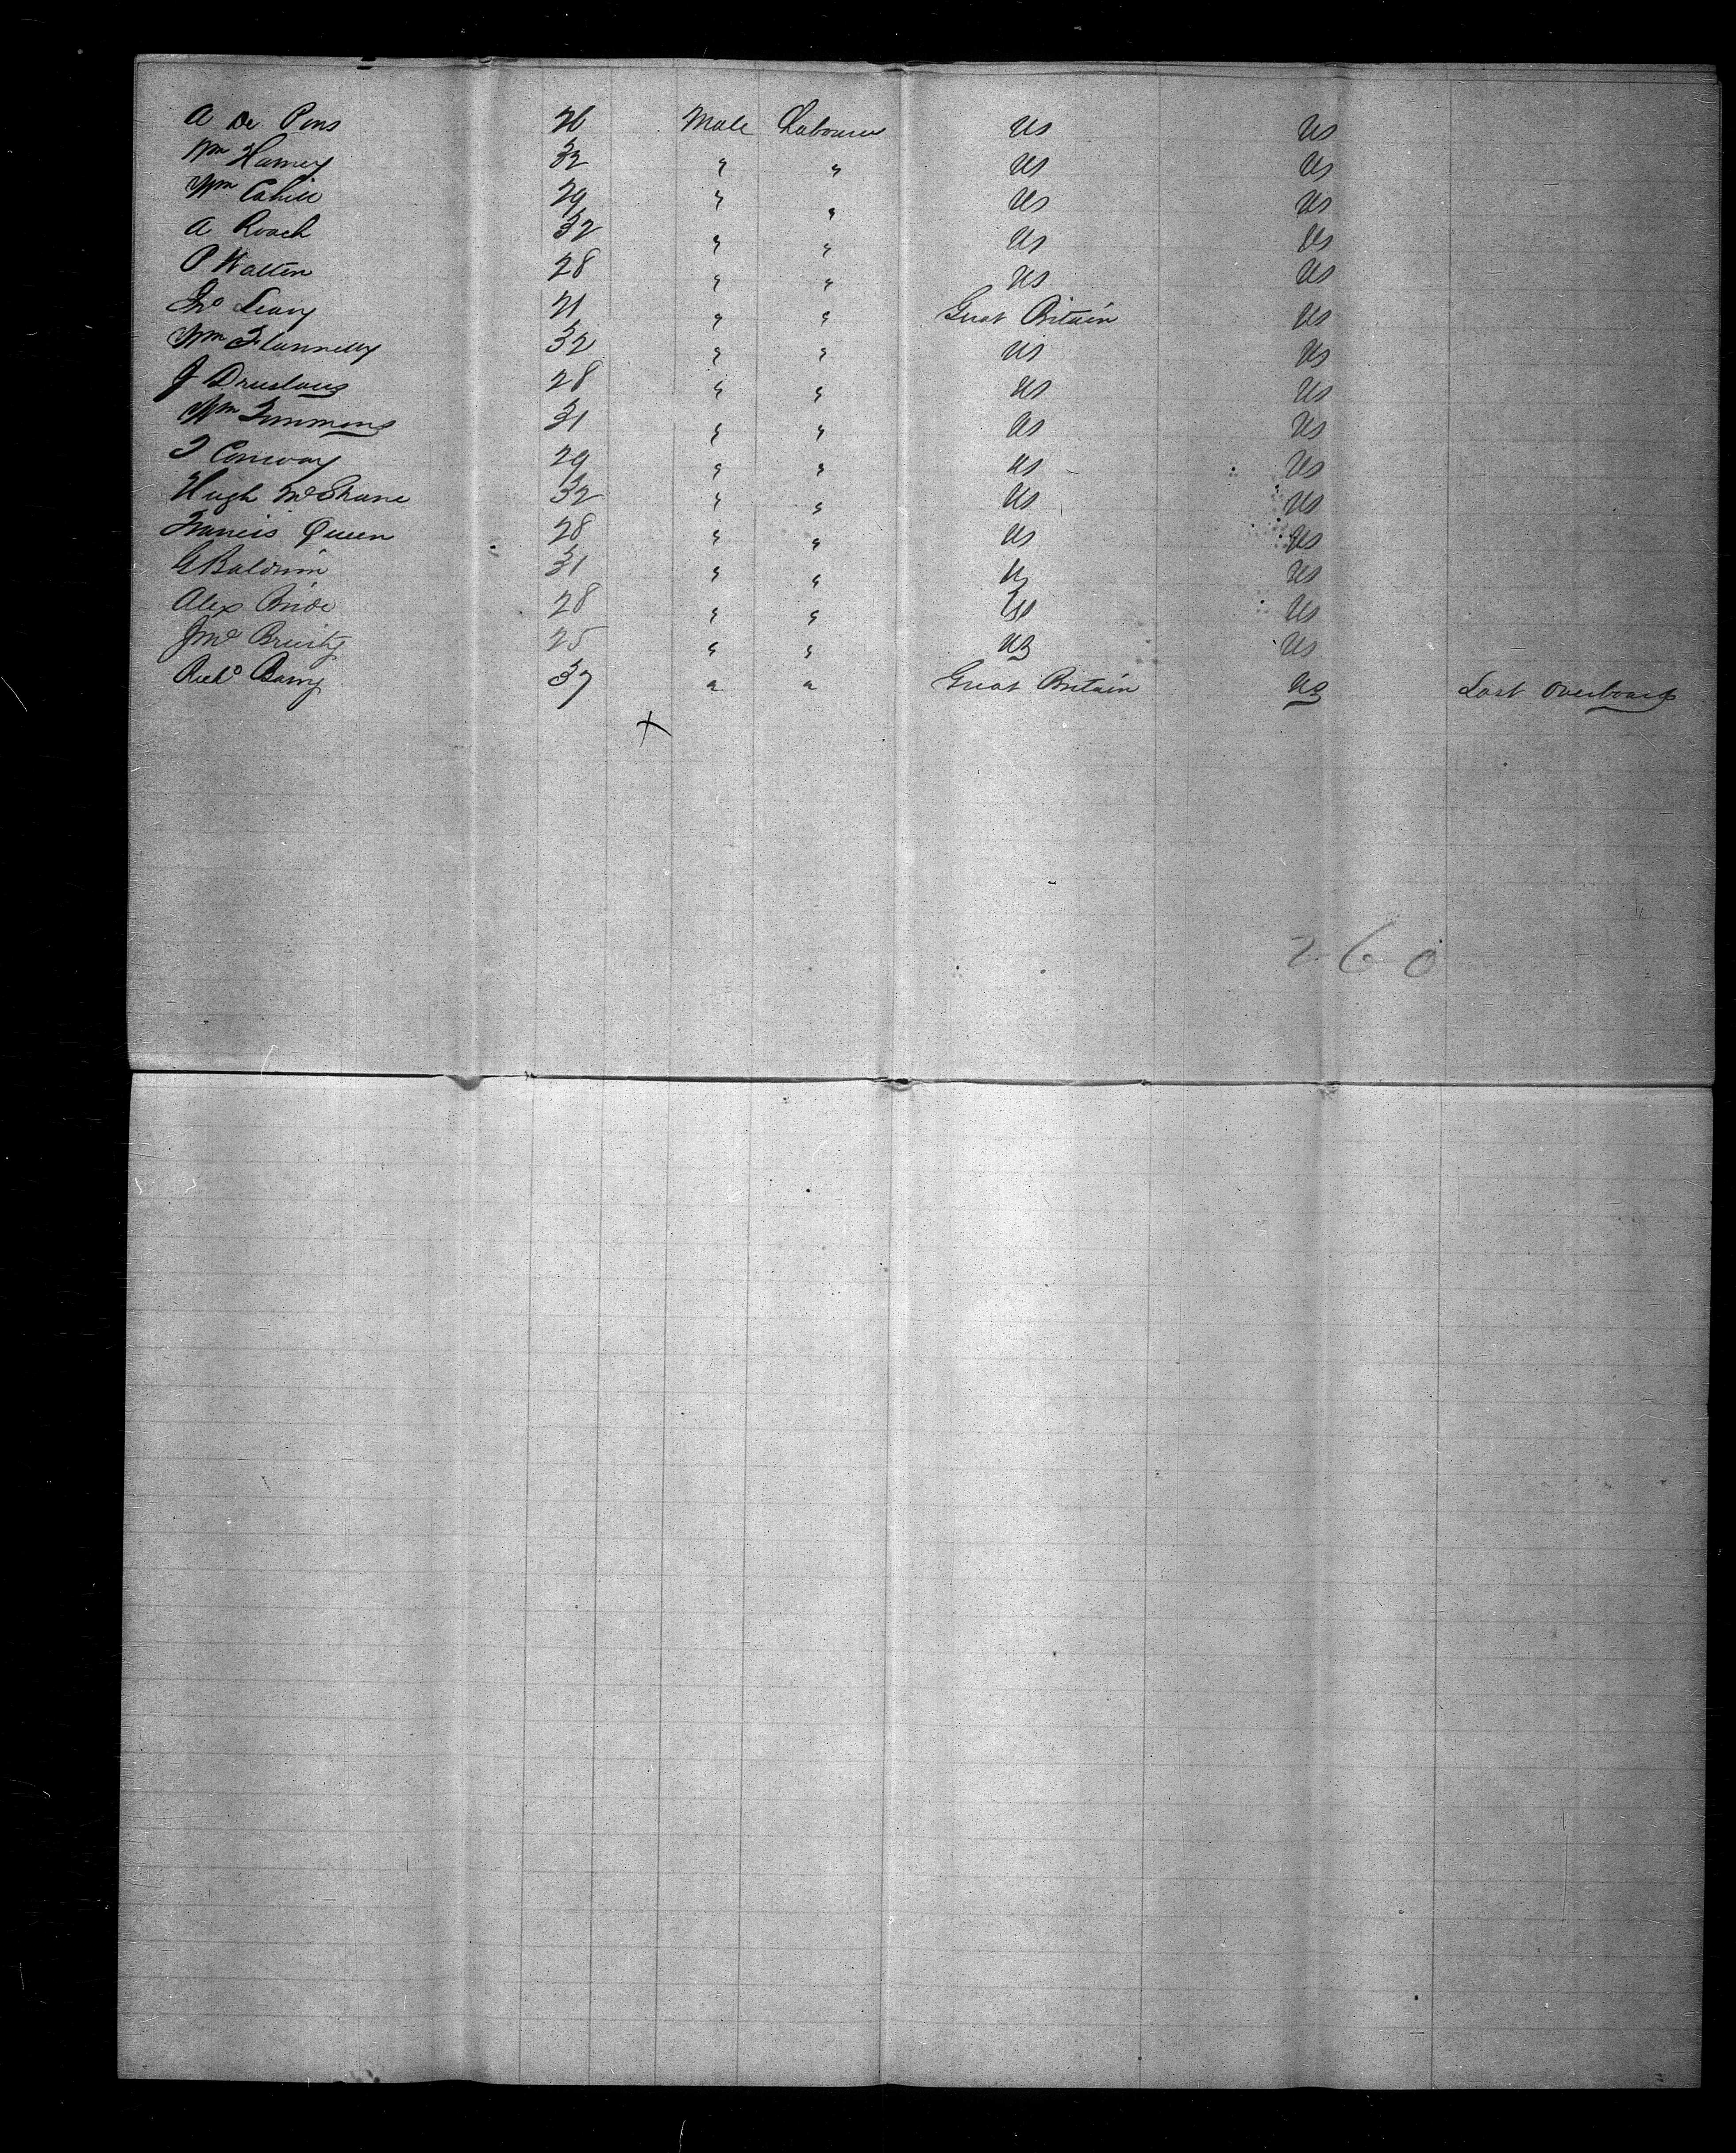 A De Pons 26 Male Labourer US US
Wm Harney 32 " " US US
Wm Cahill 29 " " US US
A Roach 32 " " US US
P Walten 28 " " US US
Jno Leavy 21 " " Great Britain US
Wm Flannelly 32 " " US US
J 28 " " US US
Wm Timmons 31 " " US US
T Conway 29 " " US US
Hugh McShane 32 " " US US
Francis Queen 28 " " US US
G Baldwin 31 " " US US
Alex Bride 28 " " US US
Jno 25 " " US US
Richd Barry 37 " " Great Britain US Lost Overboard
X
260